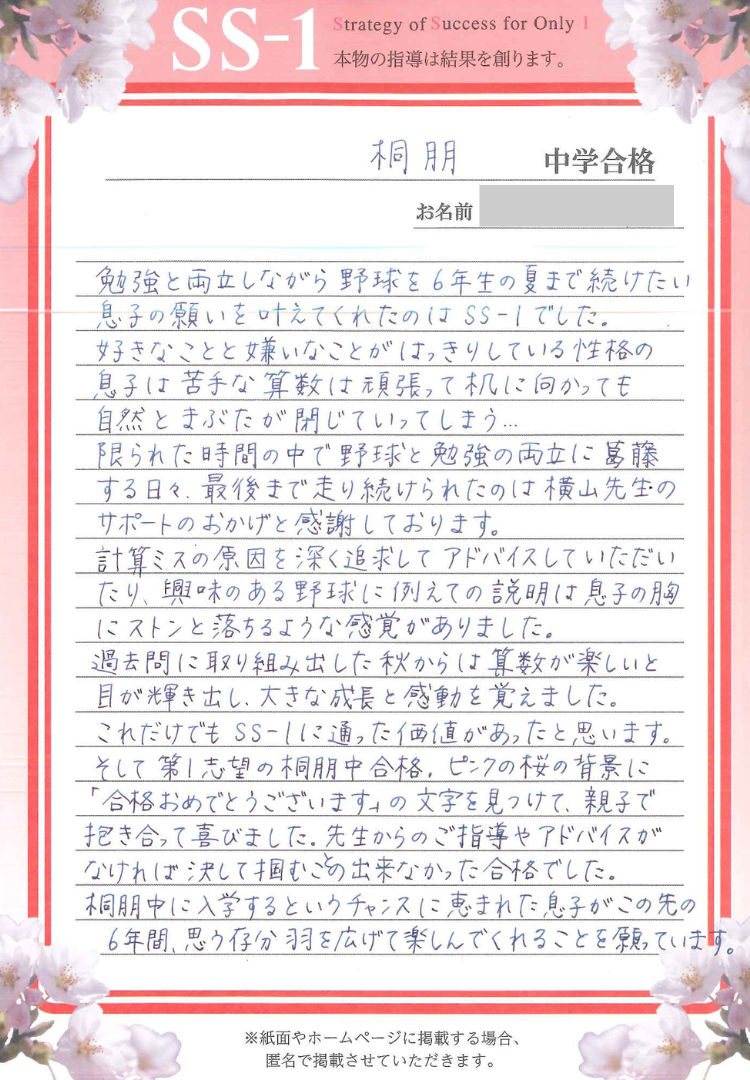 SS-1
Strategy of Success for Only 1
本物の指導は結果を創ります。
桐朋 中学合格
お名前
勉強と両立しながら野球を6年生の夏まで続けたい
息子の願いを叶えてくれたのはSS-1でした。
好きなことと嫌いなことがはっきりしている性格の
息子は苦手な算数は頑張って机に向かっても
自然とまぶたが閉じていってしまう…
限られた時間の中で野球と勉強の両立に葛藤
する日々、最後まで走り続けられたのは横山先生の
サポートのおかげと感謝しております。
計算ミスの原因を深く追求してアドバイスしていただい
たり、興味のある野球に例えての説明は息子の胸
にストンと落ちるような感覚がありました。
過去問に取り組み出した秋からは算数が楽しいと
目が輝き出し、大きな成長と感動を覚えました。
これだけでもSS-1に通った価値があったと思います。
そして第1志望の桐朋中合格。ピンクの桜の背景に
「合格おめでとうございます」の文字を見つけて、親子で
抱き合って喜びました。先生からのご指導やアドバイスが
なければ決して掴むことの出来なかった合格でした。
桐朋中に入学するというチャンスに恵まれた息子がこの先の
6年間、思う存分羽を広げて楽しんでくれることを願っています。
※紙面やホームページに掲載する場合、
匿名で掲載させていただきます。